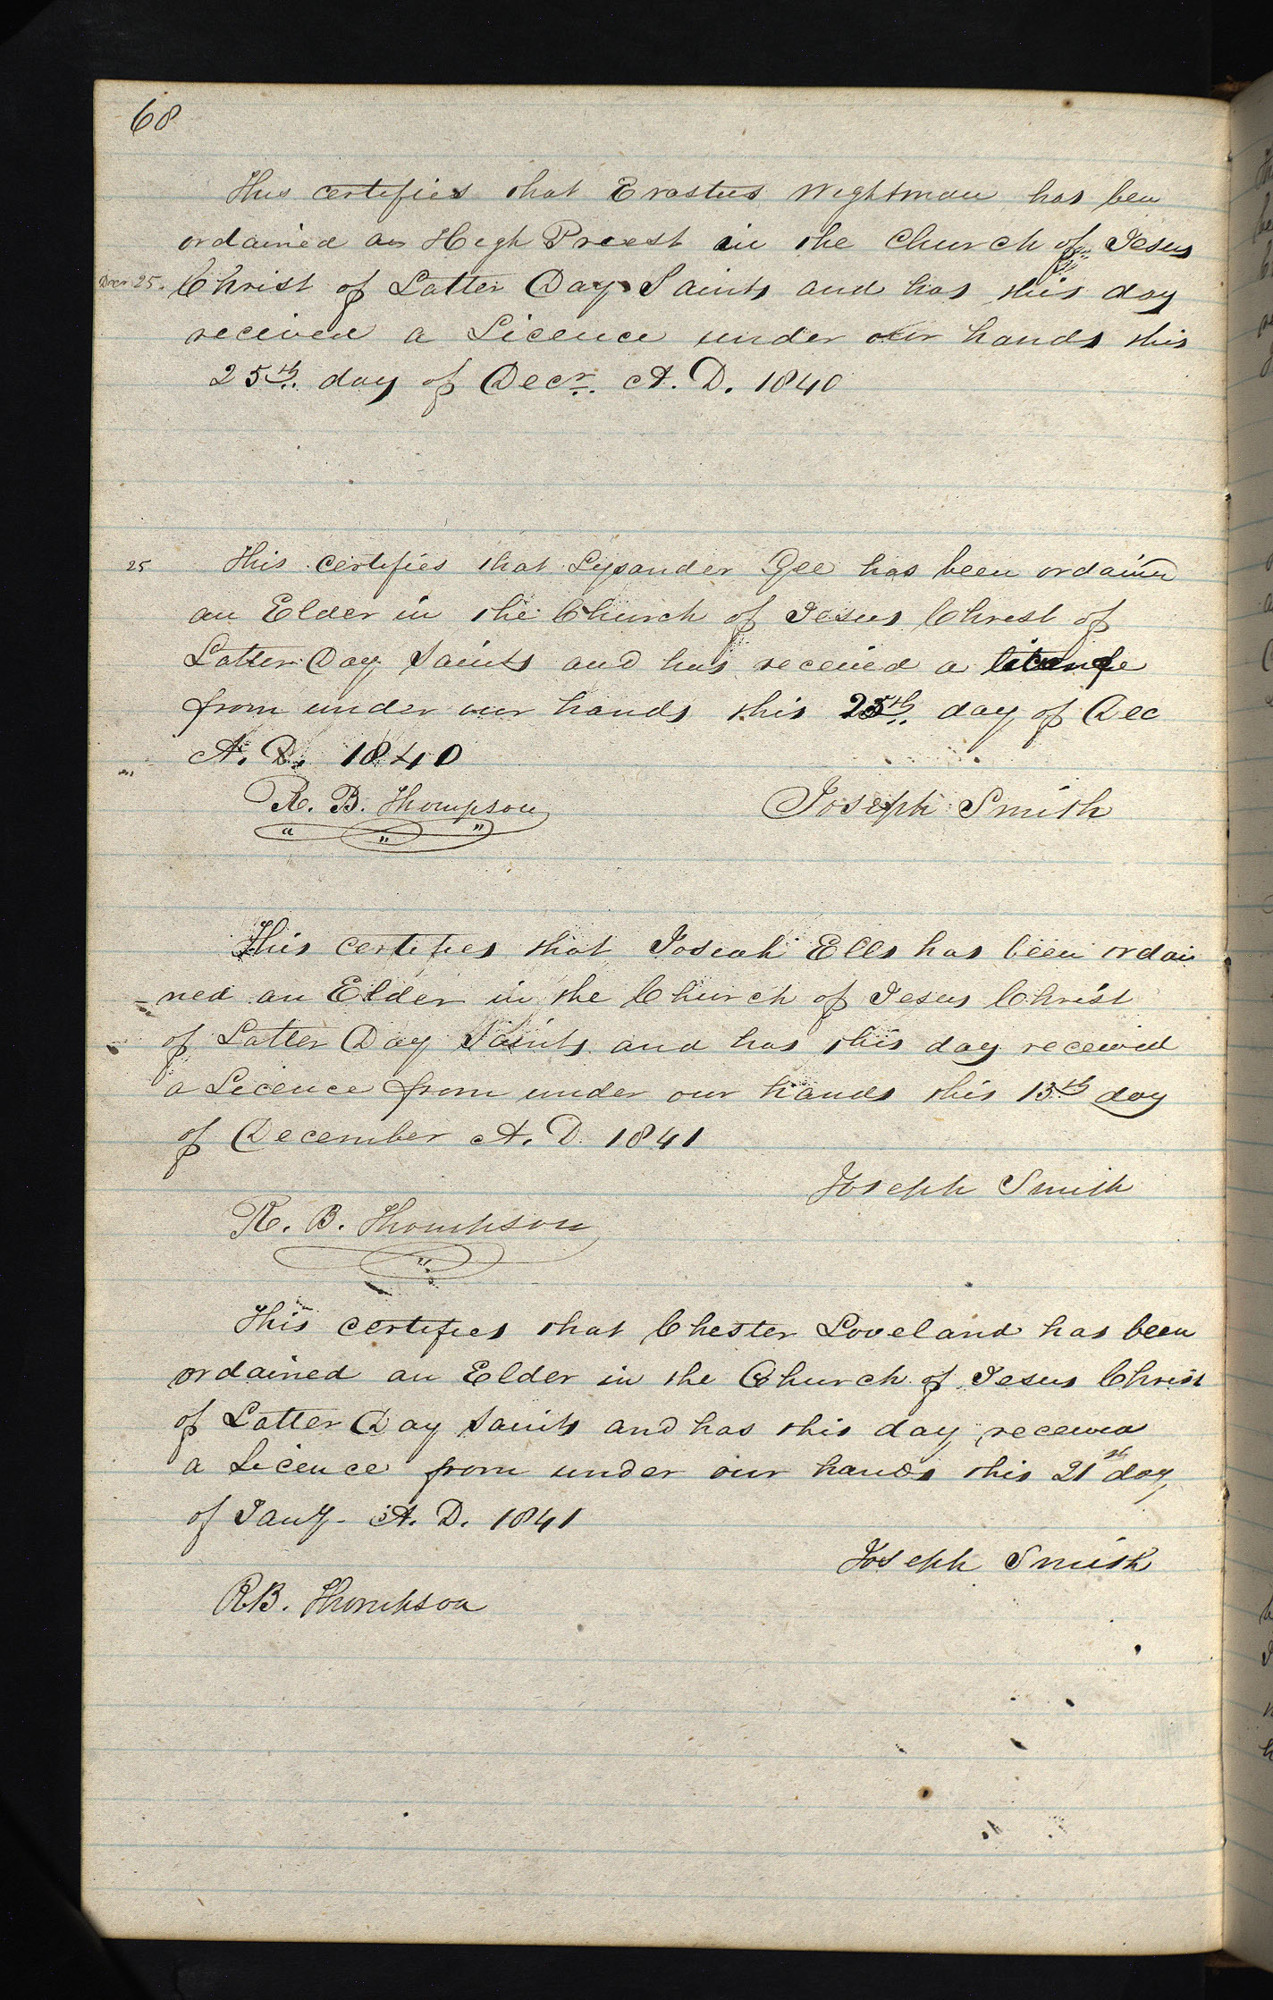 68
This certifies that Erastus Wightman has been
ordained an High Priest in the Church of Jesus
Decr 25. Christ of Latter Day Saints and has this day
received a Licence under our hands this
25th. day of Decr. A. D. 1840
25 This certifies that Lysander Gee has been ordained
an Elder in the Church of Jesus Christ of
Latter Day Saints and has received a licence
from under our hands this 25th. day of Dec
A. D. 1840
R. B. Thompson Joseph Smith
This certifies that Josiah Ells has been ordai
-ned an Elder in the Church of Jesus Christ
of Latter Day Saints and has this day received
a Licence from under our hands this 13th day
of December A. D. 1841
Joseph Smith
R. B. Thompson
This certifies that Chester Loveland has been
ordained an Elder in the Church of Jesus Christ
of Latter Day Saints and has this day received
a Licence from under our hands this 21st day
of Jany- A. D. 1841
Joseph Smith
R B. Thompson